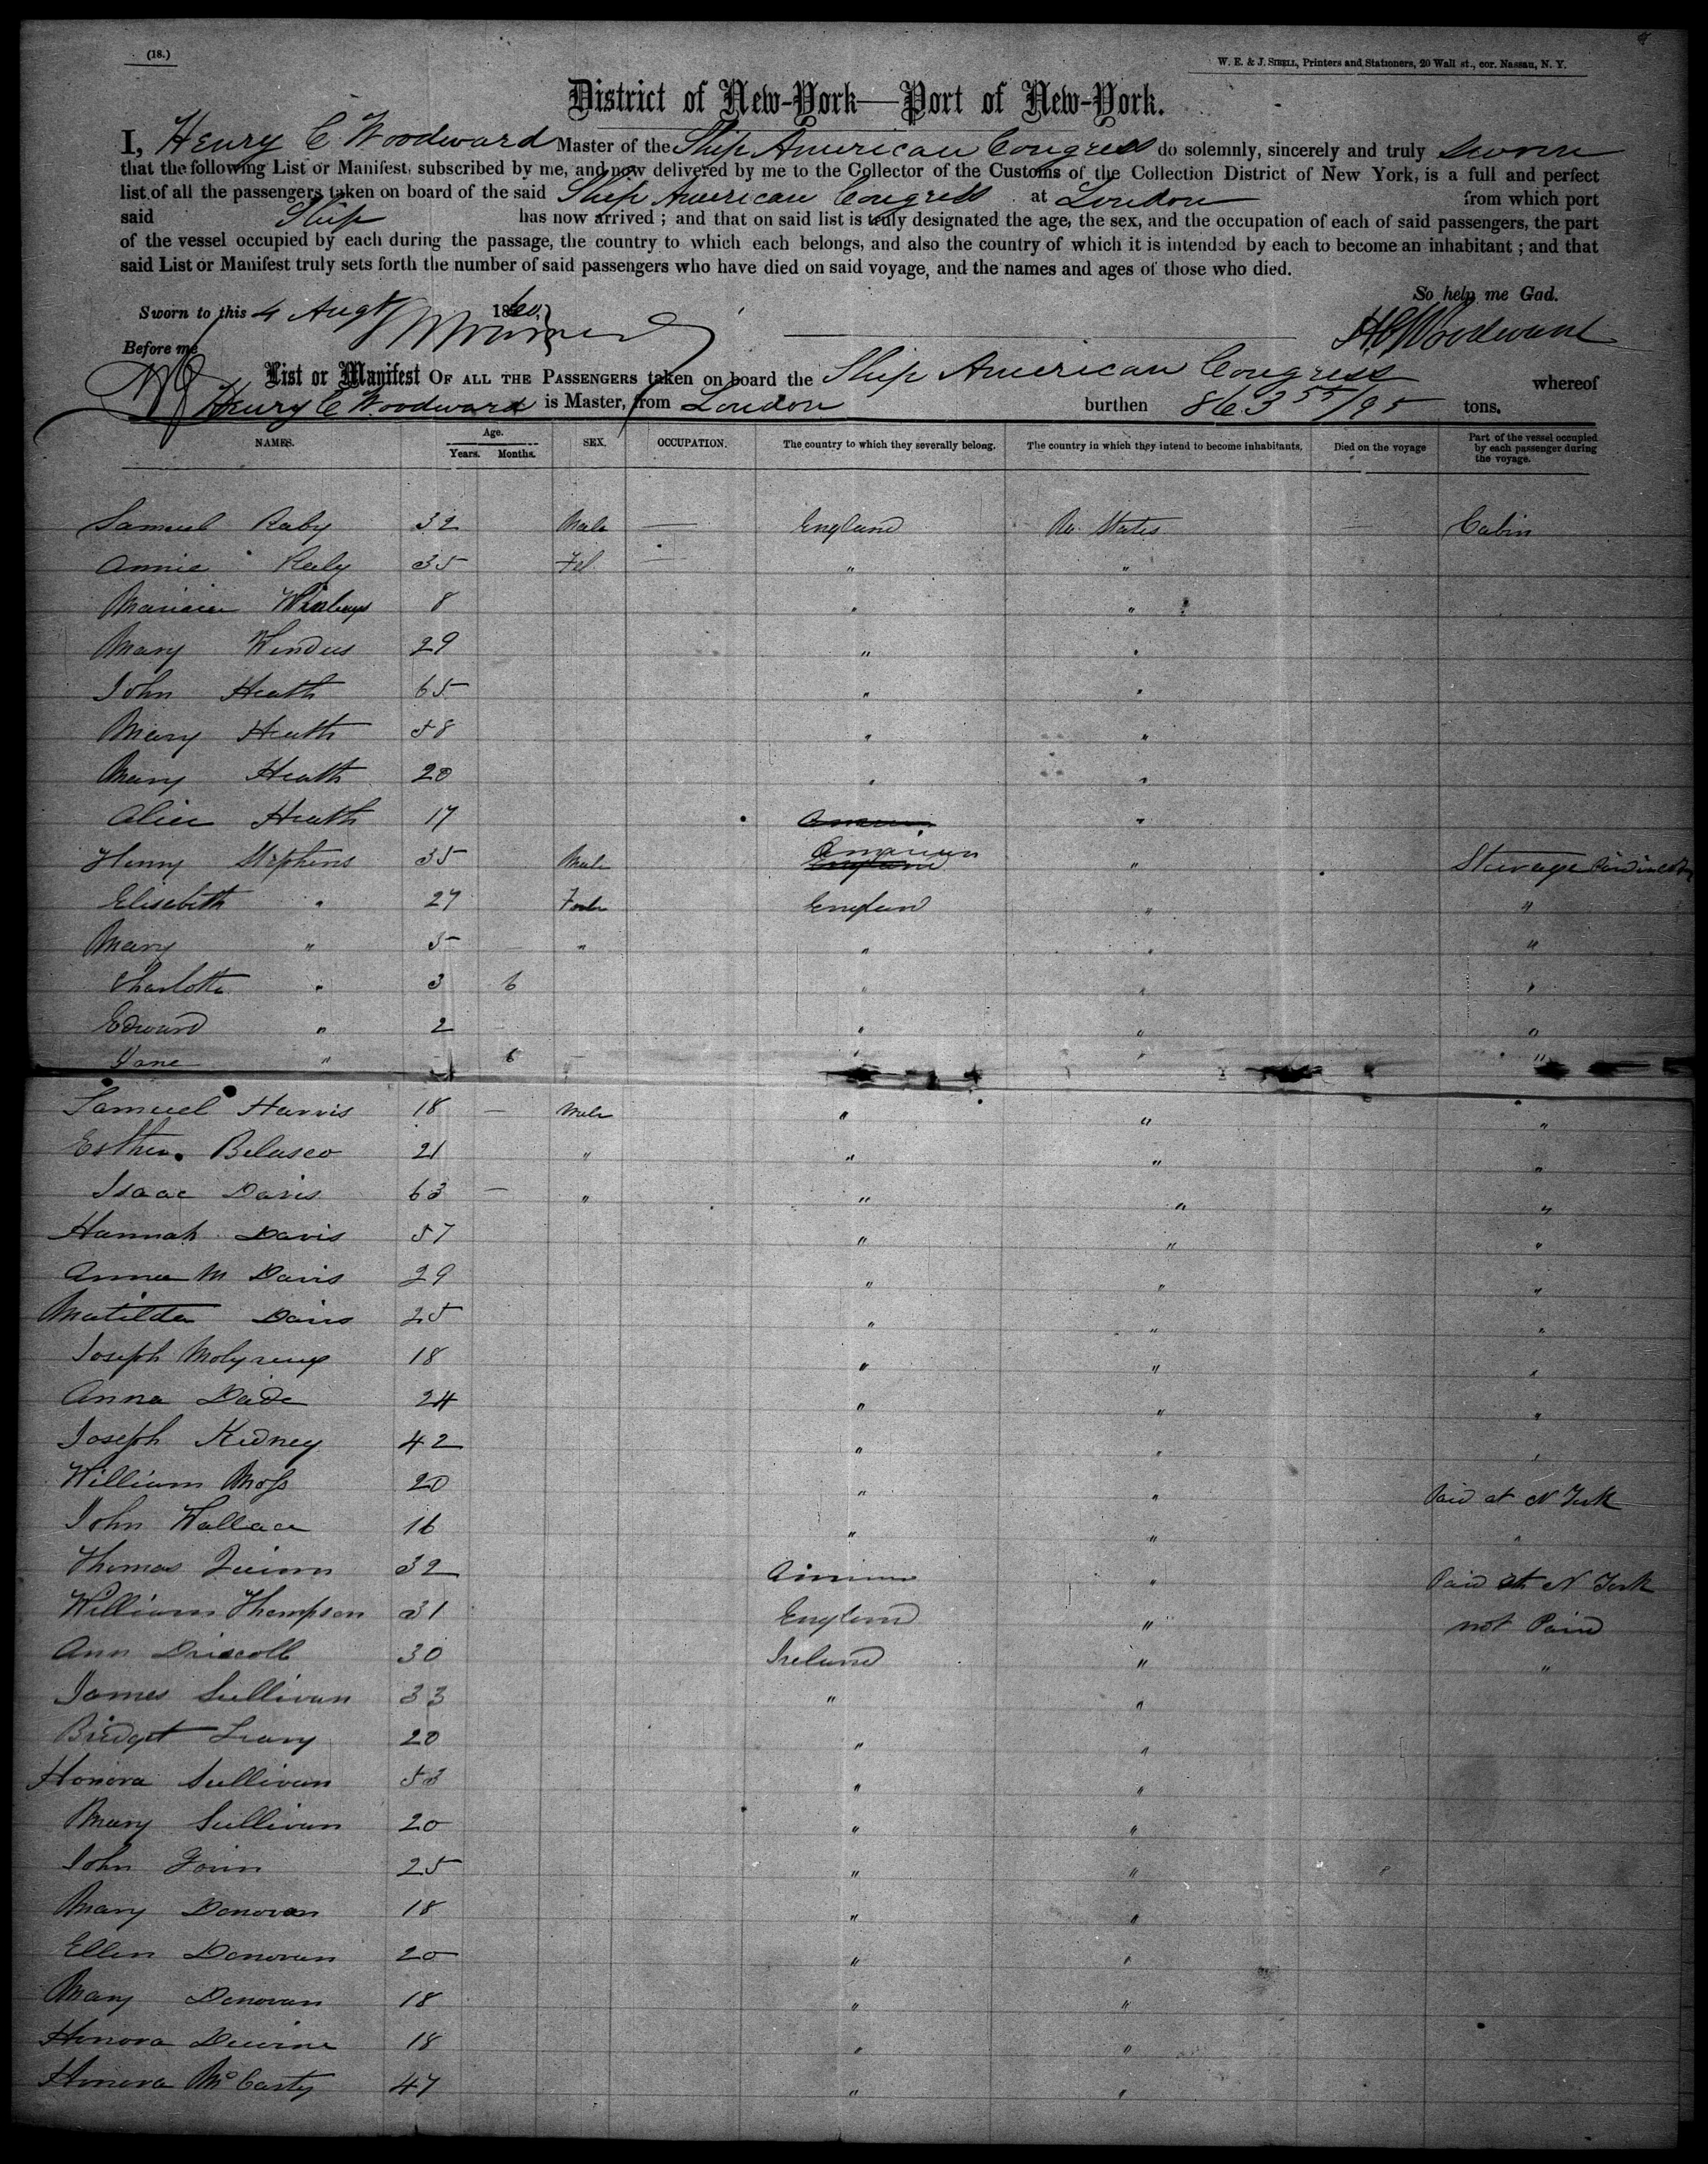 (18.)
W. E. & J. SIBELL, Printers and Stationers, 20 Wall st., cor. Nassau, N. Y.
District of New-York—Port of New-York.
I, Henry C Woodward Master of the Ship American Congress do solemnly, sincerely and truly swear
that the following List or Manifest, subscribed by me, and now delivered by me to the Collector of the Customs of the Collection District of New York, is a full and perfect
list of all the passengers taken on board of the said Ship American Congress at London from which port
said Ship has now arrived ; and that on said list is truly designated the age, the sex, and the occupation of each of said passengers, the part
of the vessel occupied by each during the passage, the country to which each belongs, and also the country of which it is intended by each to become an inhabitant ; and that
said List or Manifest truly sets forth the number of said passengers who have died on said voyage, and the names and ages of those who died.
So help me God.
Sworn to this 4 Augt 1860
H C Woodward
Before me
List or Manifest OF ALL THE PASSENGERS taken on board the Ship American Congress whereof
Henry C Woodward is Master, from London burthen 863 55/95 tons.
NAMES. Age. Years. Months. SEX. OCCUPATION. The country to which they severally belong. The country in which they intend to become inhabitants. Died on the voyage Part of the vessel occupied by each passenger during the voyage.
Samuel Raby 32 Male — England Un. States — Cabin
Annie Raby 35 Fel — " "
8 " "
Mary Windus 29 " "
John Heath 65 " "
Mary Heath 58 " "
Mary Heath 20 " "
Alice Heath 17 "
Henry Stephens 35 Male American England " Steerage
Elisabeth " 27 Female England " "
Mary " 5 " " " "
Charlotte " 3 6 " " "
Edward " 2 " " "
Jane " 6 " " "
Samuel Harris 18 — Male " " "
Esther Belasco 21 " " " "
Isaac Davis 63 — " " " "
Hannah Davis 57 " " "
Anna M Davis 29 " " "
Matilda Davis 25 " " "
Joseph Molyneux 18 " " "
Anna Dade 24 " " "
Joseph Kidney 42 " " "
William Moss 20 " " Paid at N York
John Wallace 16 " " "
Thomas Quinn 32 " Paid at N York
William Thompson 31 England " not Paid
Ann Driscoll 30 Ireland " "
James Sullivan 33 " "
Bridget Leary 20 " "
Honora Sullivan 53 " "
Mary Sullivan 20 " "
John 25 " "
Mary Donovan 18 " "
Ellen Donovan 20 " "
Mary Donovan 18 " "
Honora 18 " "
Honora McCarty 47 " "